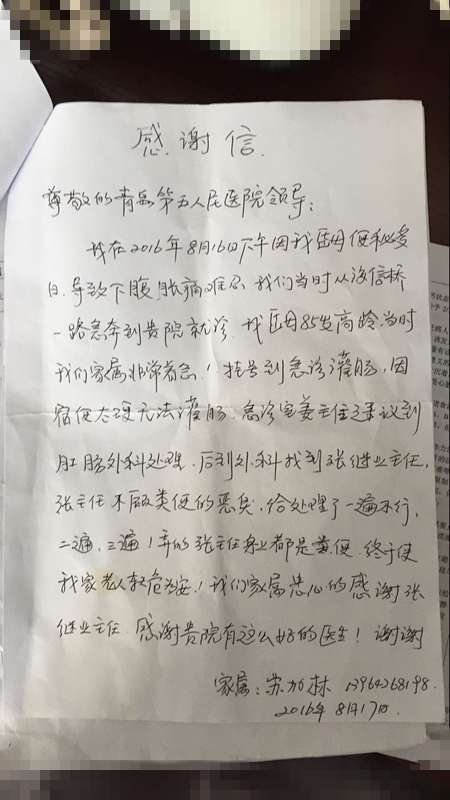 感谢信
尊敬的青岛第五人民医院领导:
我在2016年8月16日下午因我岳母便秘多
日.导致下腹胀痛难忍 我们当时从海信桥
一路急奔到贵院就诊.我岳母85岁高龄当时
我们家属非常着急!挂号到急诊灌肠,因
宿便太硬无法灌肠.急诊室姜主任建议到
肛肠外科处理.后到外科找到张继业主任,
张主任不顾粪便的恶臭,给处理了一遍不行,
二遍,三遍!弄的张主任身上都是粪便.终于使
我家老人转危为安!我们家属忠心的感谢张
继业主任.感谢贵院有这么好的医生!谢谢
家属:苏加林 13964268198.
2016年8月17日.